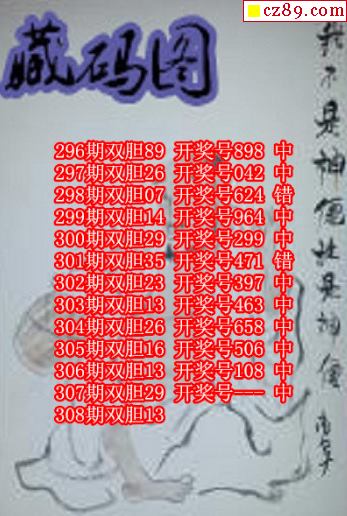 cz89.com
藏码图
296期双胆89 开奖号898 中
297期双胆26 开奖号042 中
298期双胆07 开奖号624 错
299期双胆14 开奖号964 中
300期双胆29 开奖号299 中
301期双胆35 开奖号471 错
302期双胆23 开奖号397 中
303期双胆13 开奖号463 中
304期双胆26 开奖号658 中
305期双胆16 开奖号506 中
306期双胆13 开奖号108 中
307期双胆29 开奖号--- 中
308期双胆13
我不是神僊就是神僊